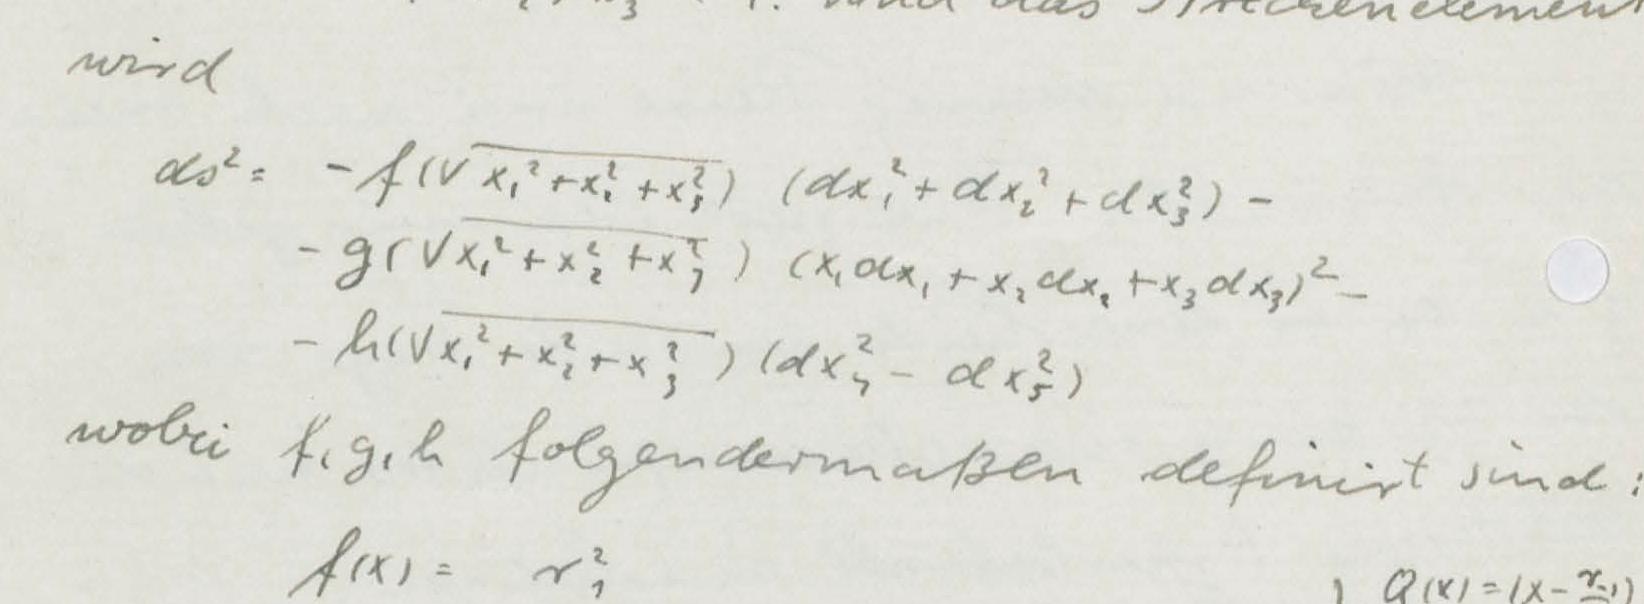 und das Streckenelement
wird
ds² = -f(√x₁²+x₂²+x₃²) (dx₁²+dx₂²+dx₃²) -
-g(√x₁²+x₂²+x₃²) (x₁dx₁+x₂dx₂+x₃dx₃)² -
-h(√x₁²+x₂²+x₃²) (dx₄² - dx₅²)
wobei f, g, h folgendermaßen definirt sind:
f(x) = r₁²